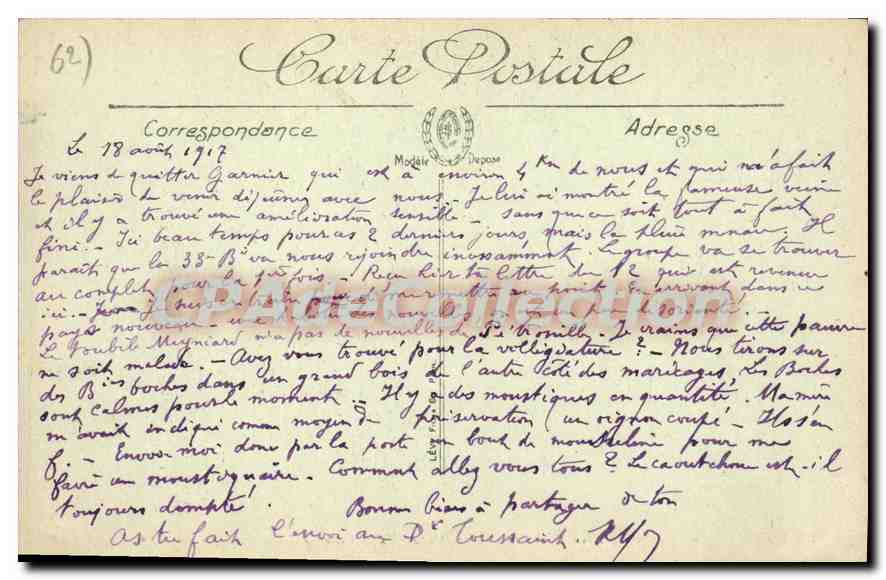 62)
Carte Postale
Correspondance
Adresse
Modèle Déposé
Le 18 août 1917
Je viens de quitter Garnier qui est à environ 4 Km de nous et qui m'a fait
le plaisir de venir déjeuner avec nous. Je lui ai montré la fameuse veine
et il y a trouvé une amélioration sensible – sans que ce soit tout à fait
fini. – Ici beau temps pour ces 2 derniers jours, mais la pluie menace. Il
parait que la 33e Bie va nous rejoindre incessamment. Le groupe va se trouver
au complet pour la 1ère fois – Reçu hier ta lettre du 12 qui est revenue
ici. – en arrivant dans ce
pays nouveau –
Le Toubib Meyniard n'a pas de nouvelles de Pétronille. Je crains que cette pauvre
ne soit malade. – Avez vous trouvé pour la villégiature ? – Nous tirons sur
des Bies boches dans un grand bois de l'autre côté des marécages. Les Boches
sont calmes pour le moment. – Il y a des moustiques en quantité. Ma mère
m'avait indiqué comme moyen de préservation un oignon coupé – Ils s'en
f. – Envoie moi donc par la poste un bout de mousseline pour me
faire un moustiquaire. Comment allez vous tous ? Le caoutchouc est-il
toujours dompté !
Bonnes bises à partager de ton
As tu fait l'envoi au Dr Toussaint.
LÉVY
CPArtCollection